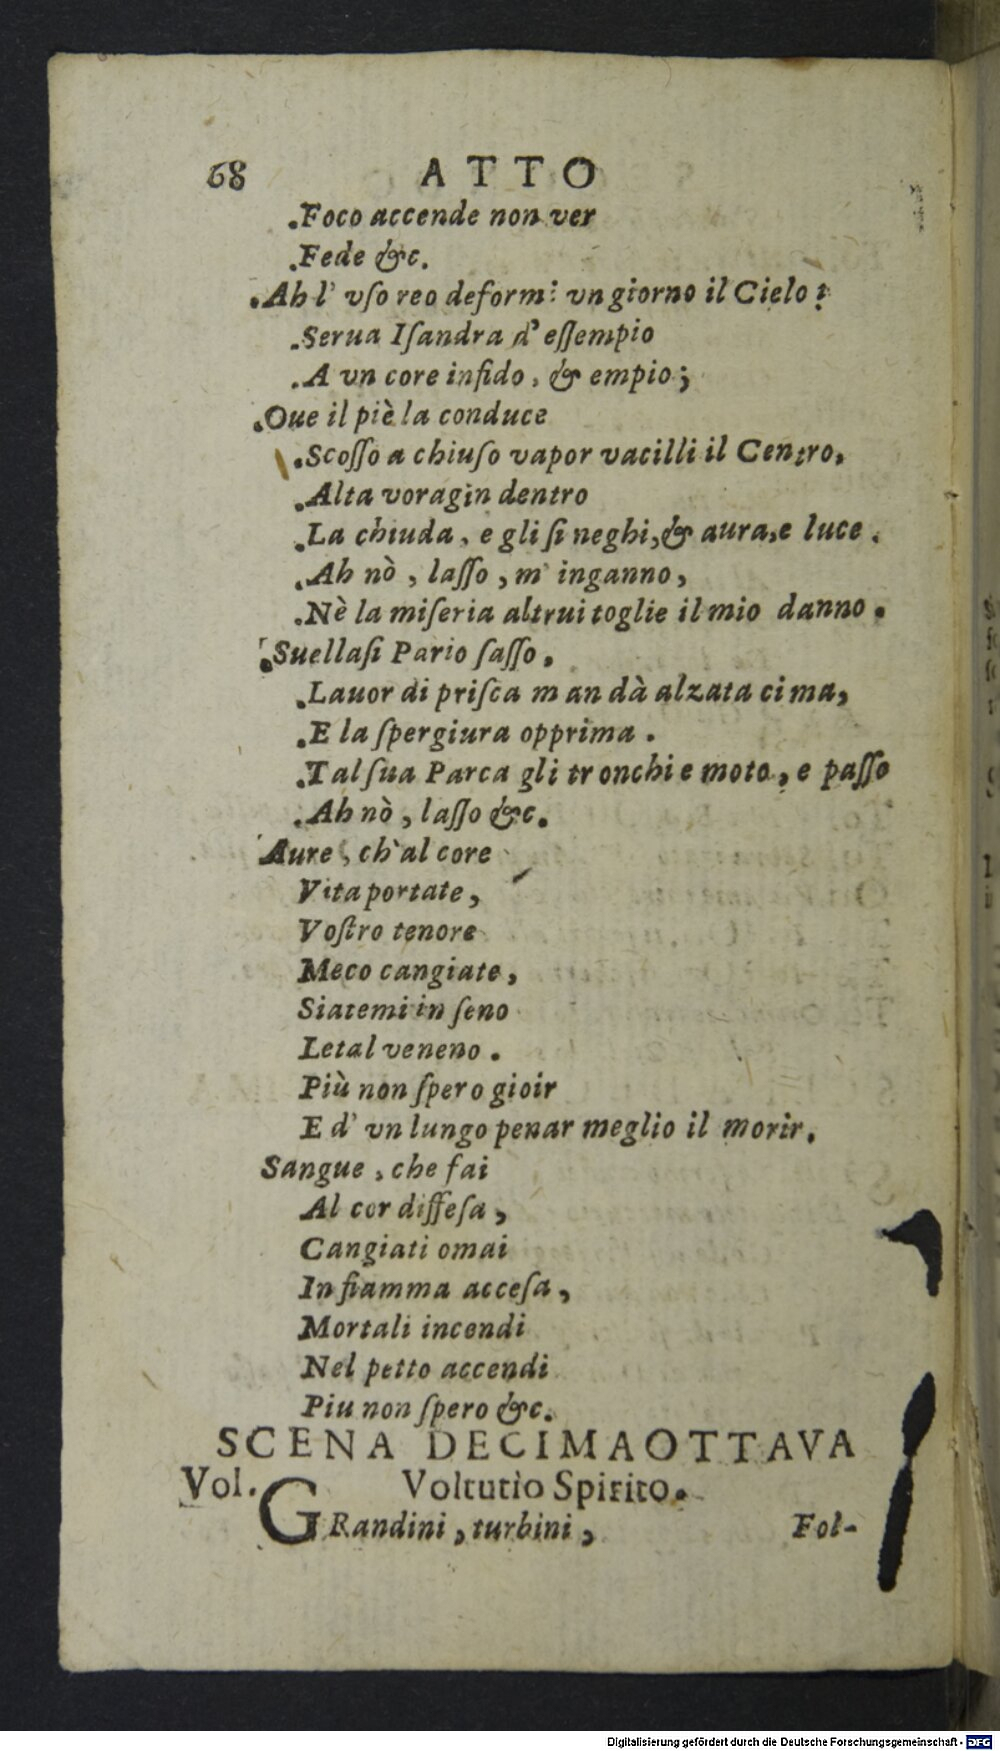 68 ATTO
.Foco accende non ver
.Fede &c.
.Ah l' vſo reo deformi vn giorno il Cielo!
.Serua Iſandra d' eſſempio
.A vn core infido, & empio;
.Oue il piè la conduce
.Scoſſo a chiuſo vapor vacilli il Centro,
.Alta voragin dentro
.La chiuda, e gli ſi neghi, & aura, e luce.
.Ah nò, laſſo, m' inganno,
.Nè la miſeria altrui toglie il mio danno.
.Suellaſi Pario ſaſſo,
.Lauor di priſca man dà alzata cima,
.E la ſpergiura opprima.
.Tal ſua Parca gli tronchi e moto, e paſſo
.Ah nò, laſſo &c.
Aure, ch' al core
Vita portate,
Voſtro tenore
Meco cangiate,
Siatemi in ſeno
Letal veneno.
Più non ſpero gioir
E d' vn lungo penar meglio il morir.
Sangue, che fai
Al cor diffeſa,
Cangiati omai
In fiamma acceſa,
Mortali incendi
Nel petto accendi
Piu non ſpero &c.
SCENA DECIMAOTTAVA
Vol. Voltutio Spirito.
GRandini, turbini, Fol-
Digitalisierung gefördert durch die Deutsche Forschungsgemeinschaft - DFG